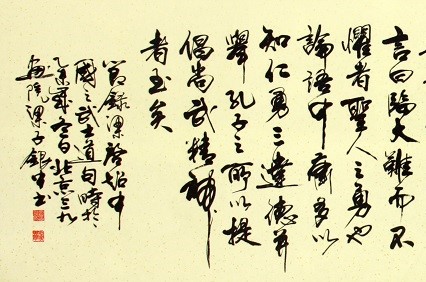 言曰臨大難而不
懼者聖人之勇也
論語中亦多以
知仁勇三達德並
舉孔子之所以提
倡尚武精神
者至矣
節錄梁啓超中
國之武士道句時於
乙未年冬日北京
梁子銀書